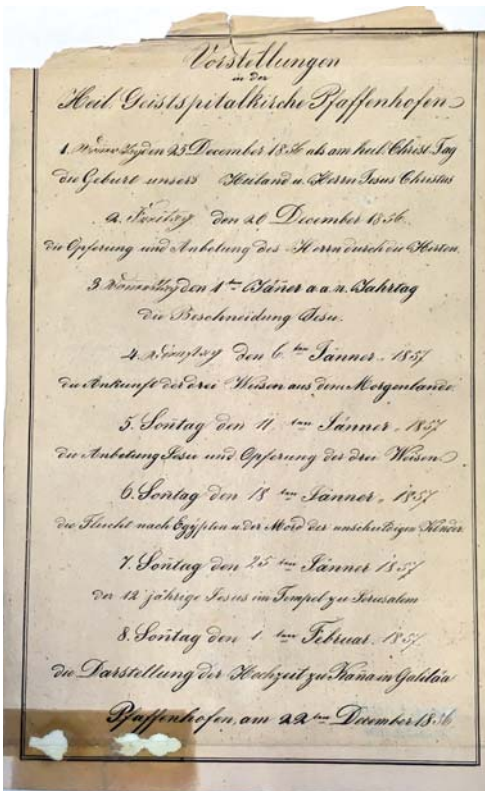 Vorstellungen
in der
Heil. Geistspitalkirche Pfaffenhofen
1. Donerstag den 25 December 1856 als am heil. Christ-Tag
die Geburt unsers Heiland u. Herrn Jesus Christus
2. Freitag den 26 December 1856
die Opferung und Anbetung des Herrn durch die Hirten.
3. Donerstag den 1ten Jäner a. a. n. Jahrtag
die Beschneidung Jesu.
4. Dinstag den 6.ten Jänner. 1857
die Ankunft der drei Weisen aus dem Morgenlande.
5. Sontag den 11 ten Jänner. 1857
die Anbetung Jesu und Opferung der drei Weisen
6. Sontag den 18 ten Jänner. 1857
die Flucht nach Egÿpten u. der Mord der unschuldigen Kinder.
7. Sontag den 25 ten Jänner 1857
der 12 jährige Jesus im Tempel zu Jerusalem
8. Sontag den 1 ten Februar. 1857.
die Darstellung der Hochzeit zu Kana in Galiläa
Pfaffenhofen, am 22ten December 1856